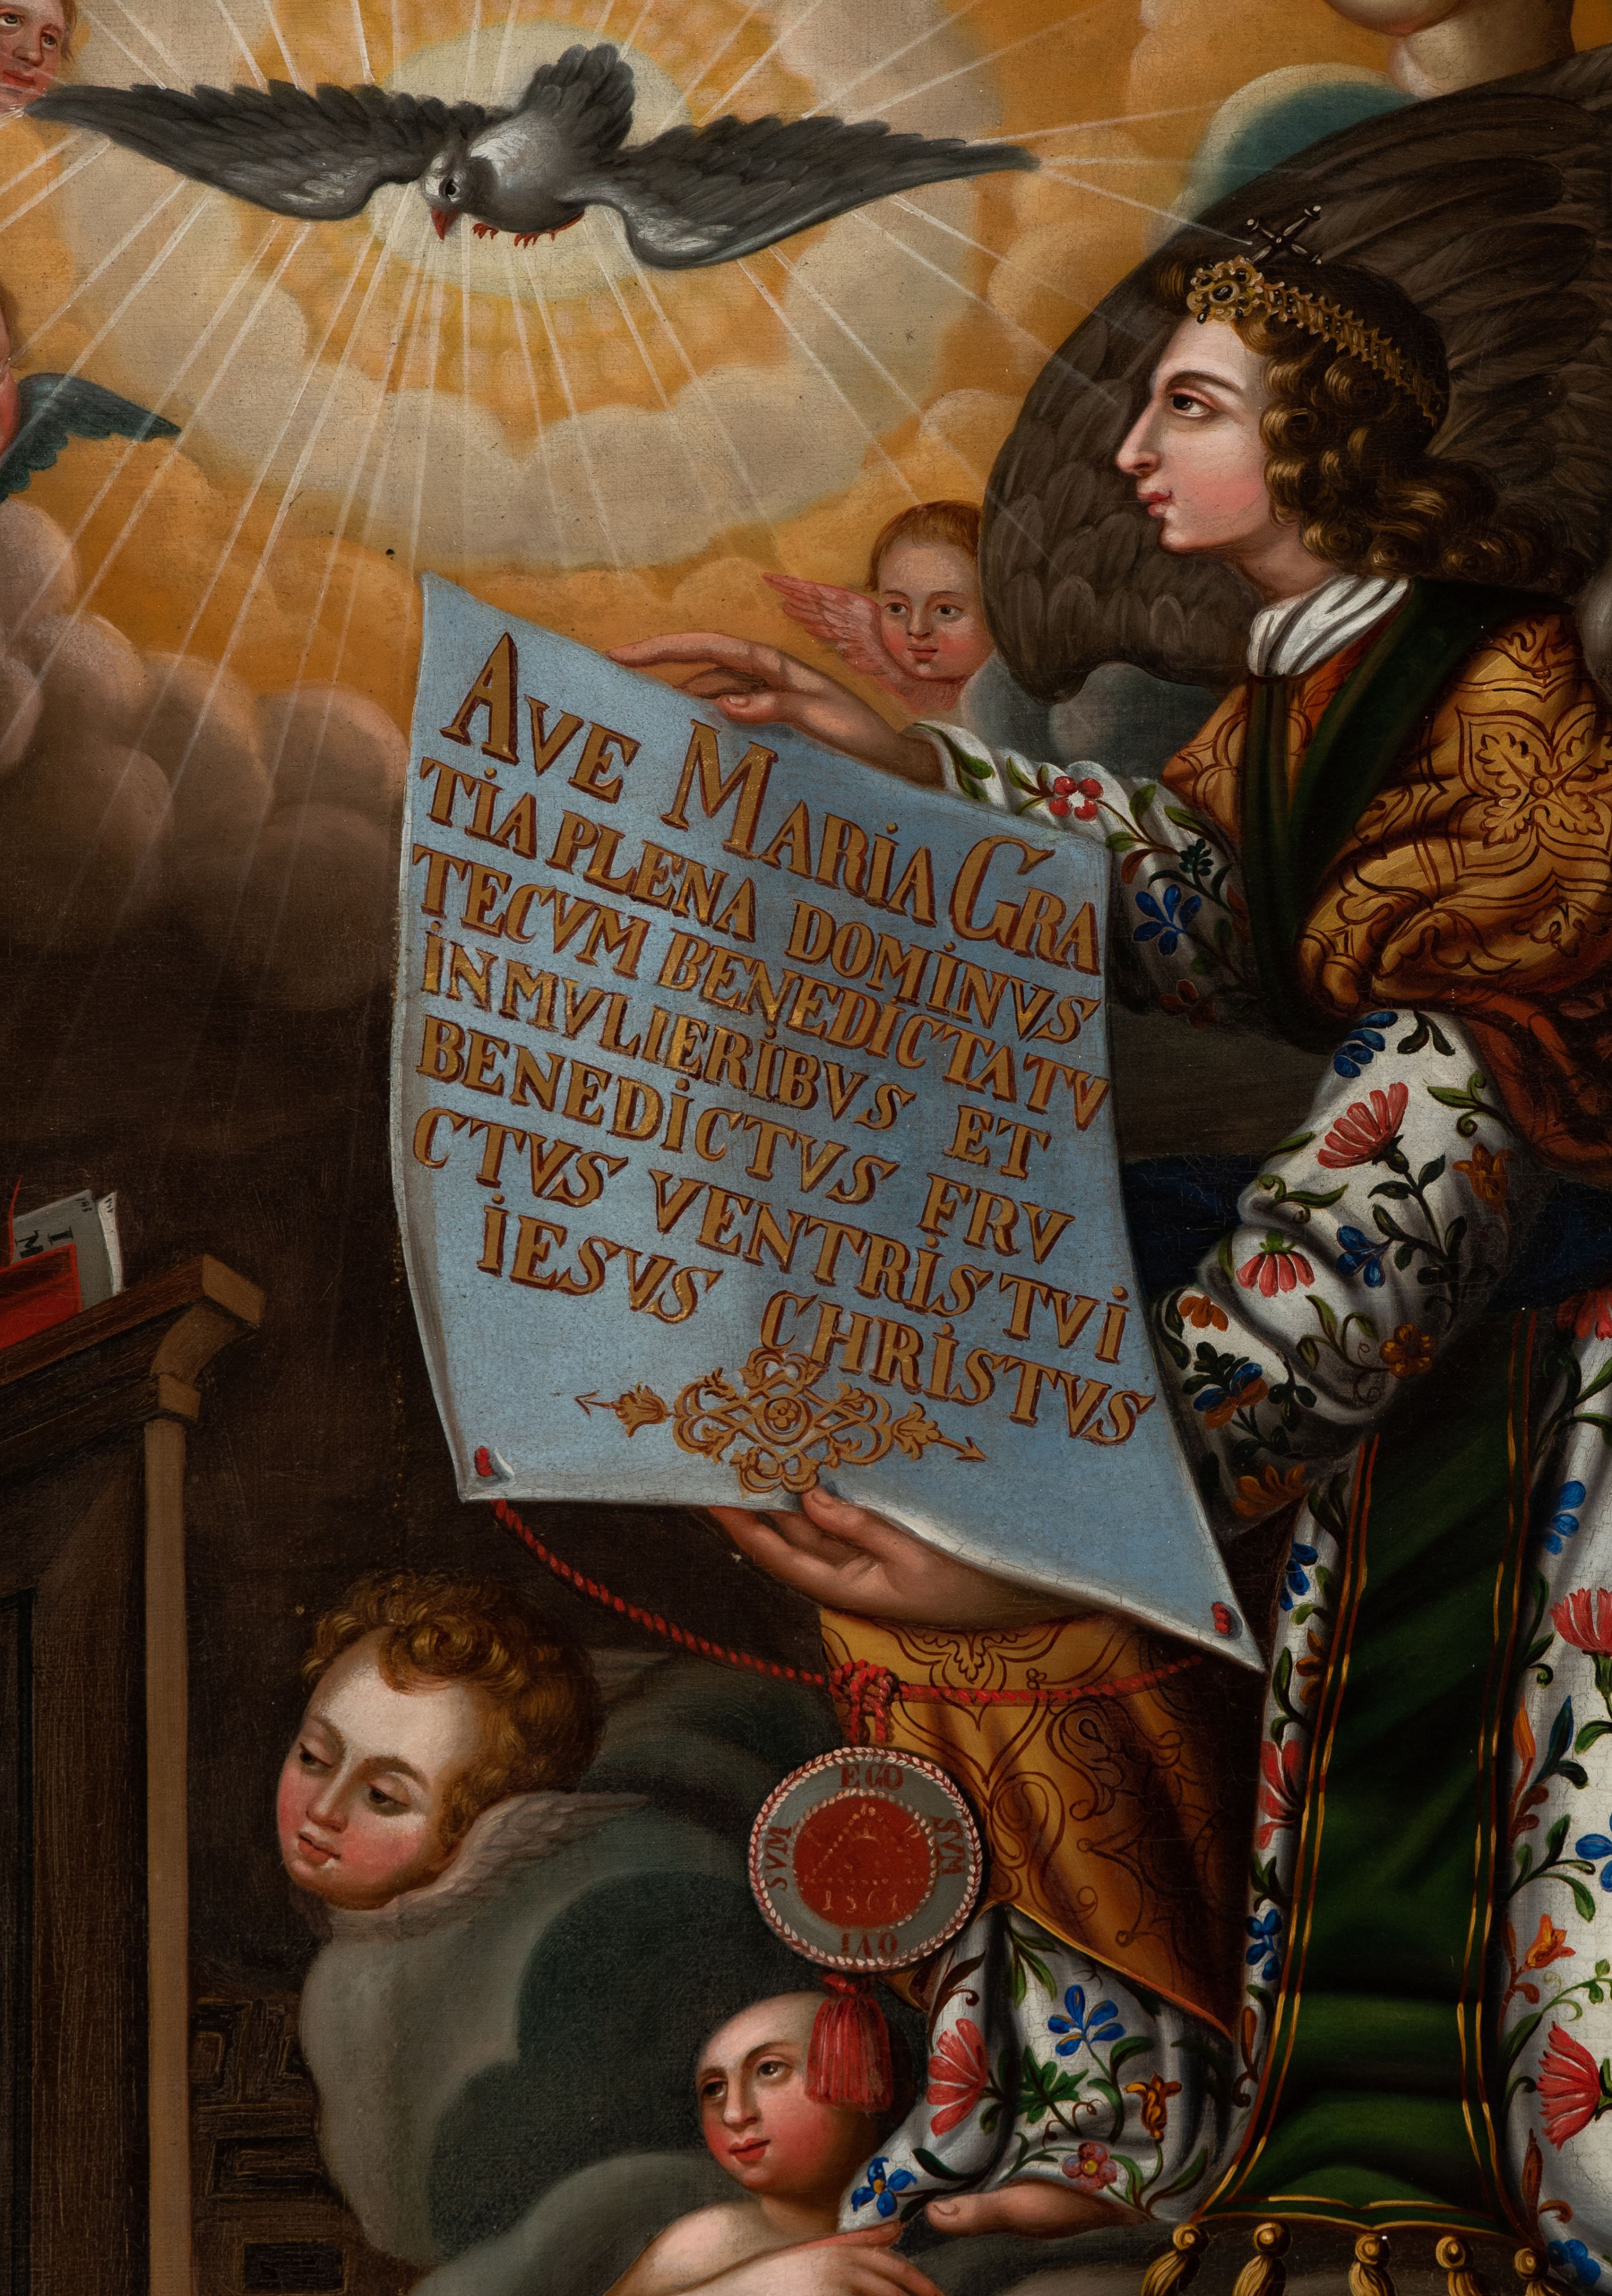 AVE MARIA GRA
TIA PLENA DOMINVS
TECVM BENEDICTATV
IN MVLIERIBVS ET
BENEDICTVS FRV
CTVS VENTRIS TVI
IESVS CHRISTVS
EGO
SVM
QVI
SVM